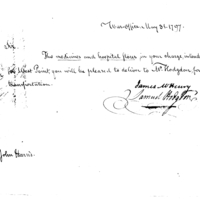 War office May 31. 1797.
Sir,
The medicines and hospital stores in your charge intended
for West Point you will be pleased to deliver to Mr Hodgdon for
transportation.
James McHenry
Samuel Hodgdon
John Harris